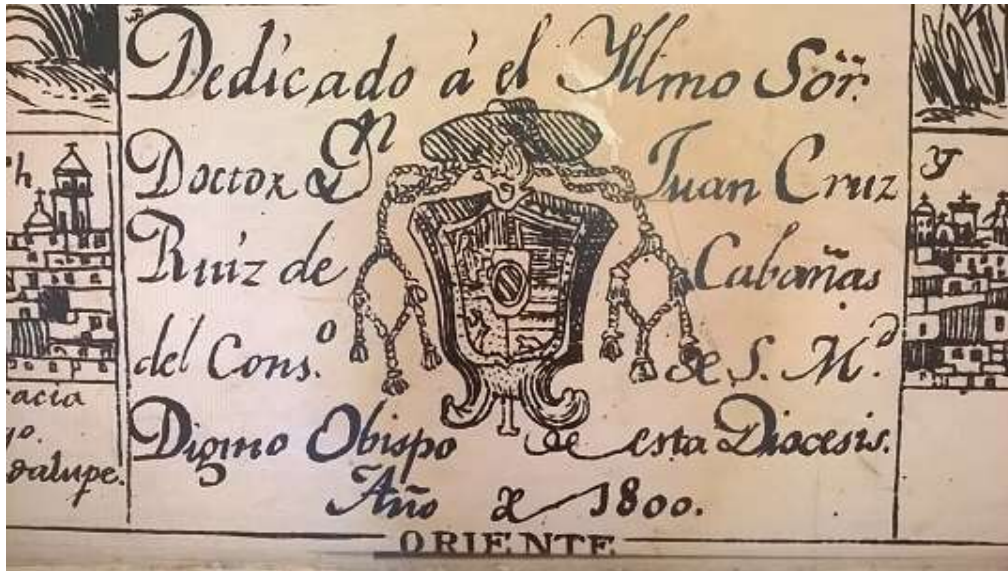 Dedicado á el Yllmo Sör.
Doctor Dn Juan Cruz
Ruiz de Cabañas
del Cons.o de S. M.d
Digmo Obispo de esta Diocesis.
Año de 1800.
ORIENTE
h
acia
go.
dalupe.
Y